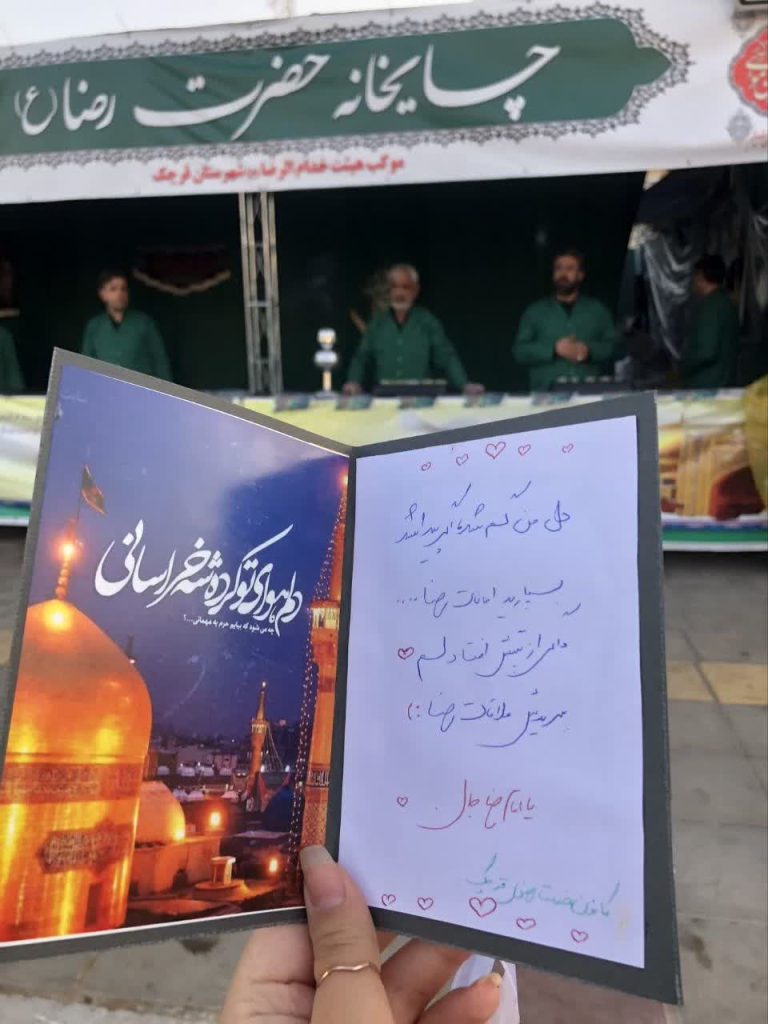 چایخانه حضرت رضا (ع)
موکب هیئت خدام الرضا شهرستان قرچک
دلم هوای تو کرده شه خراسانی
چه می شود که بیایم حرم به مهمانی...؟
دل من گم شد، گر پیدا شد
بسپارید امانات رضا ...
و اگر از تپش افتاد دلم
ببریدش ملاقات رضا :)
یا امام رضا جان
کانون